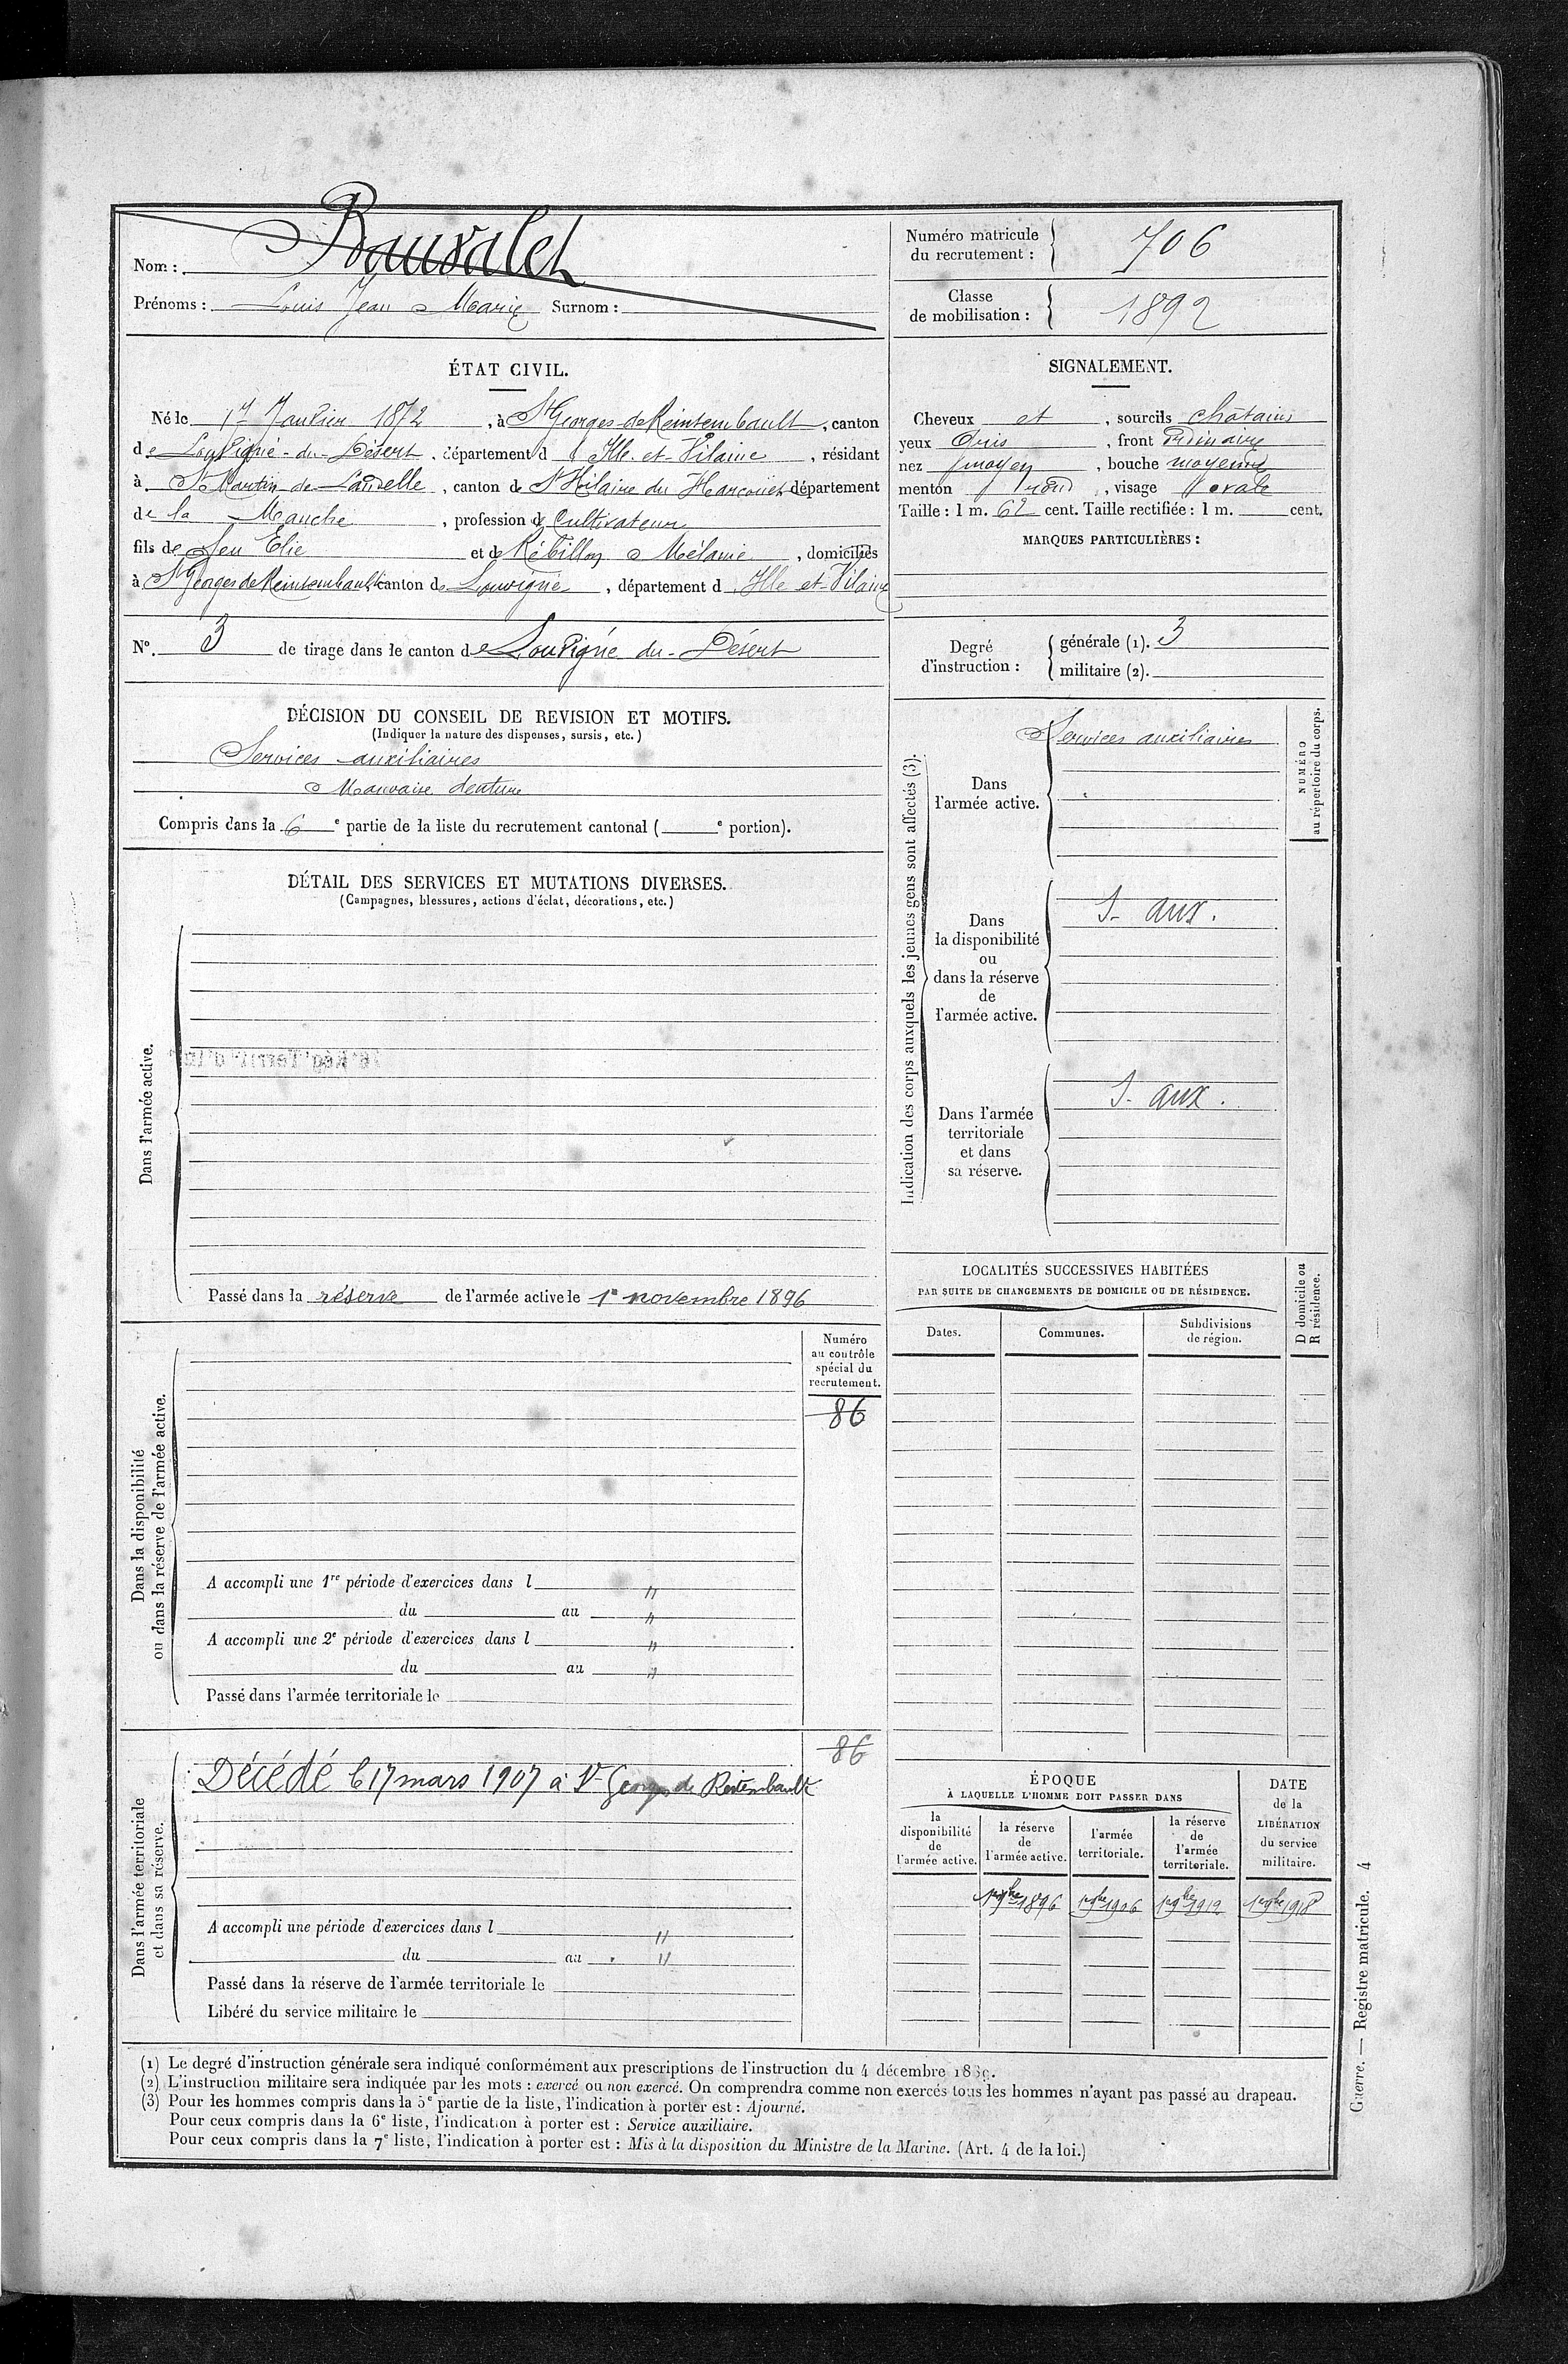 Nom : Bauvalet
Prénoms : Louis Jean Marie Surnom :
Numéro matricule du recrutement : 706
Classe de mobilisation : 1892
ÉTAT CIVIL.
Né le 1er Janvier 1872, à St Georges de Reintembault, canton
de Louvigné-du-Désert, département d Ille-et-Vilaine, résidant
à St Martin de Landelle, canton de St Hilaire du Harcouet département
de la Manche, profession de Cultivateur
fils de feu Elie et de Rébillon Mélanie, domiciliés
à St Georges de Reintembault canton de Louvigné, département d Ille-et-Vilaine
No. 3 de tirage dans le canton de Louvigné-du-Désert
SIGNALEMENT.
Cheveux et, sourcils châtains
yeux Gris, front ordinaire
nez moyen, bouche moyenne
menton rond, visage ovale
Taille : 1 m. 62 cent. Taille rectifiée : 1 m. cent.
MARQUES PARTICULIÈRES :
Degré d'instruction : générale (1). 3
militaire (2).
DÉCISION DU CONSEIL DE REVISION ET MOTIFS.
(Indiquer la nature des dispenses, sursis, etc.)
Services auxiliaires
Mauvaise denture
Compris dans la 6e partie de la liste du recrutement cantonal ( e portion).
DÉTAIL DES SERVICES ET MUTATIONS DIVERSES.
(Campagnes, blessures, actions d'éclat, décorations, etc.)
Dans l'armée active.
Passé dans la réserve de l'armée active le 1er novembre 1896
Indication des corps auxquels les jeunes gens sont affectés (3).
NUMÉRO
au répertoire du corps.
Dans
l'armée active.
Services auxiliaires
Dans
la disponibilité
ou
dans la réserve
de
l'armée active.
S. aux.
Dans l'armée
territoriale
et dans
sa réserve.
S. aux.
Dans la disponibilité
ou dans la réserve de l'armée active.
Numéro
au contrôle
spécial du
recrutement.
86
A accompli une 1re période d'exercices dans l "
du au "
A accompli une 2e période d'exercices dans l "
du au "
Passé dans l'armée territoriale le
LOCALITÉS SUCCESSIVES HABITÉES
PAR SUITE DE CHANGEMENTS DE DOMICILE OU DE RÉSIDENCE.
D domicile ou
R résidence.
Dates.
Communes.
Subdivisions
de région.
Dans l'armée territoriale
et dans sa réserve.
86
Décédé le 17 mars 1907 à St Georges de Reitembault
A accompli une période d'exercices dans l "
du au "
Passé dans la réserve de l'armée territoriale le
Libéré du service militaire le
ÉPOQUE
À LAQUELLE L'HOMME DOIT PASSER DANS
la
disponibilité
de
l'armée active.
la réserve
de
l'armée active.
l'armée
territoriale.
la réserve
de
l'armée
territoriale.
DATE
de la
LIBÉRATION
du service
militaire.
1er 9bre 1896
1er 9bre 1906
1er 9bre 1912
1er 9bre 1918
(1) Le degré d'instruction générale sera indiqué conformément aux prescriptions de l'instruction du 4 décembre 1889.
(2) L'instruction militaire sera indiquée par les mots : exercé ou non exercé. On comprendra comme non exercés tous les hommes n'ayant pas passé au drapeau.
(3) Pour les hommes compris dans la 5e partie de la liste, l'indication à porter est : Ajourné.
Pour ceux compris dans la 6e liste, l'indication à porter est : Service auxiliaire.
Pour ceux compris dans la 7e liste, l'indication à porter est : Mis à la disposition du Ministre de la Marine. (Art. 4 de la loi.)
Guerre. — Registre matricule. 4